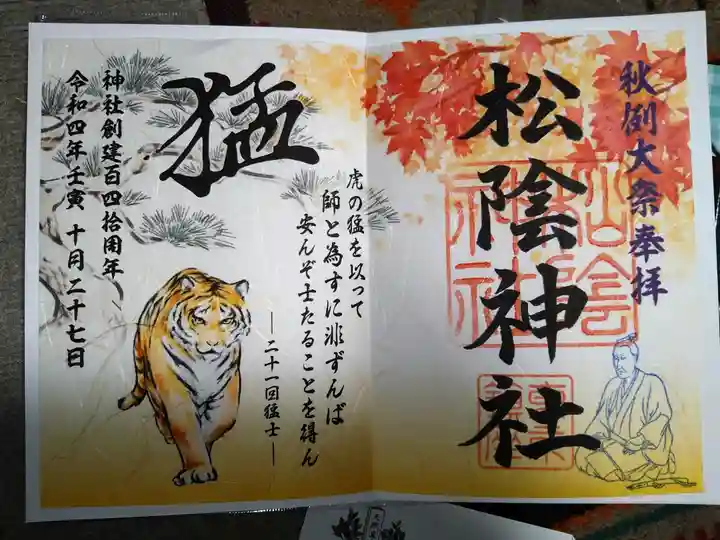 秋例大祭奉拝
松陰神社
松陰神社
猛
虎の猛を以って
師と為すに非ずんば
安んぞ士たることを得ん
―二十一回猛士―
神社創建百四拾周年
令和四年壬寅 十月二十七日